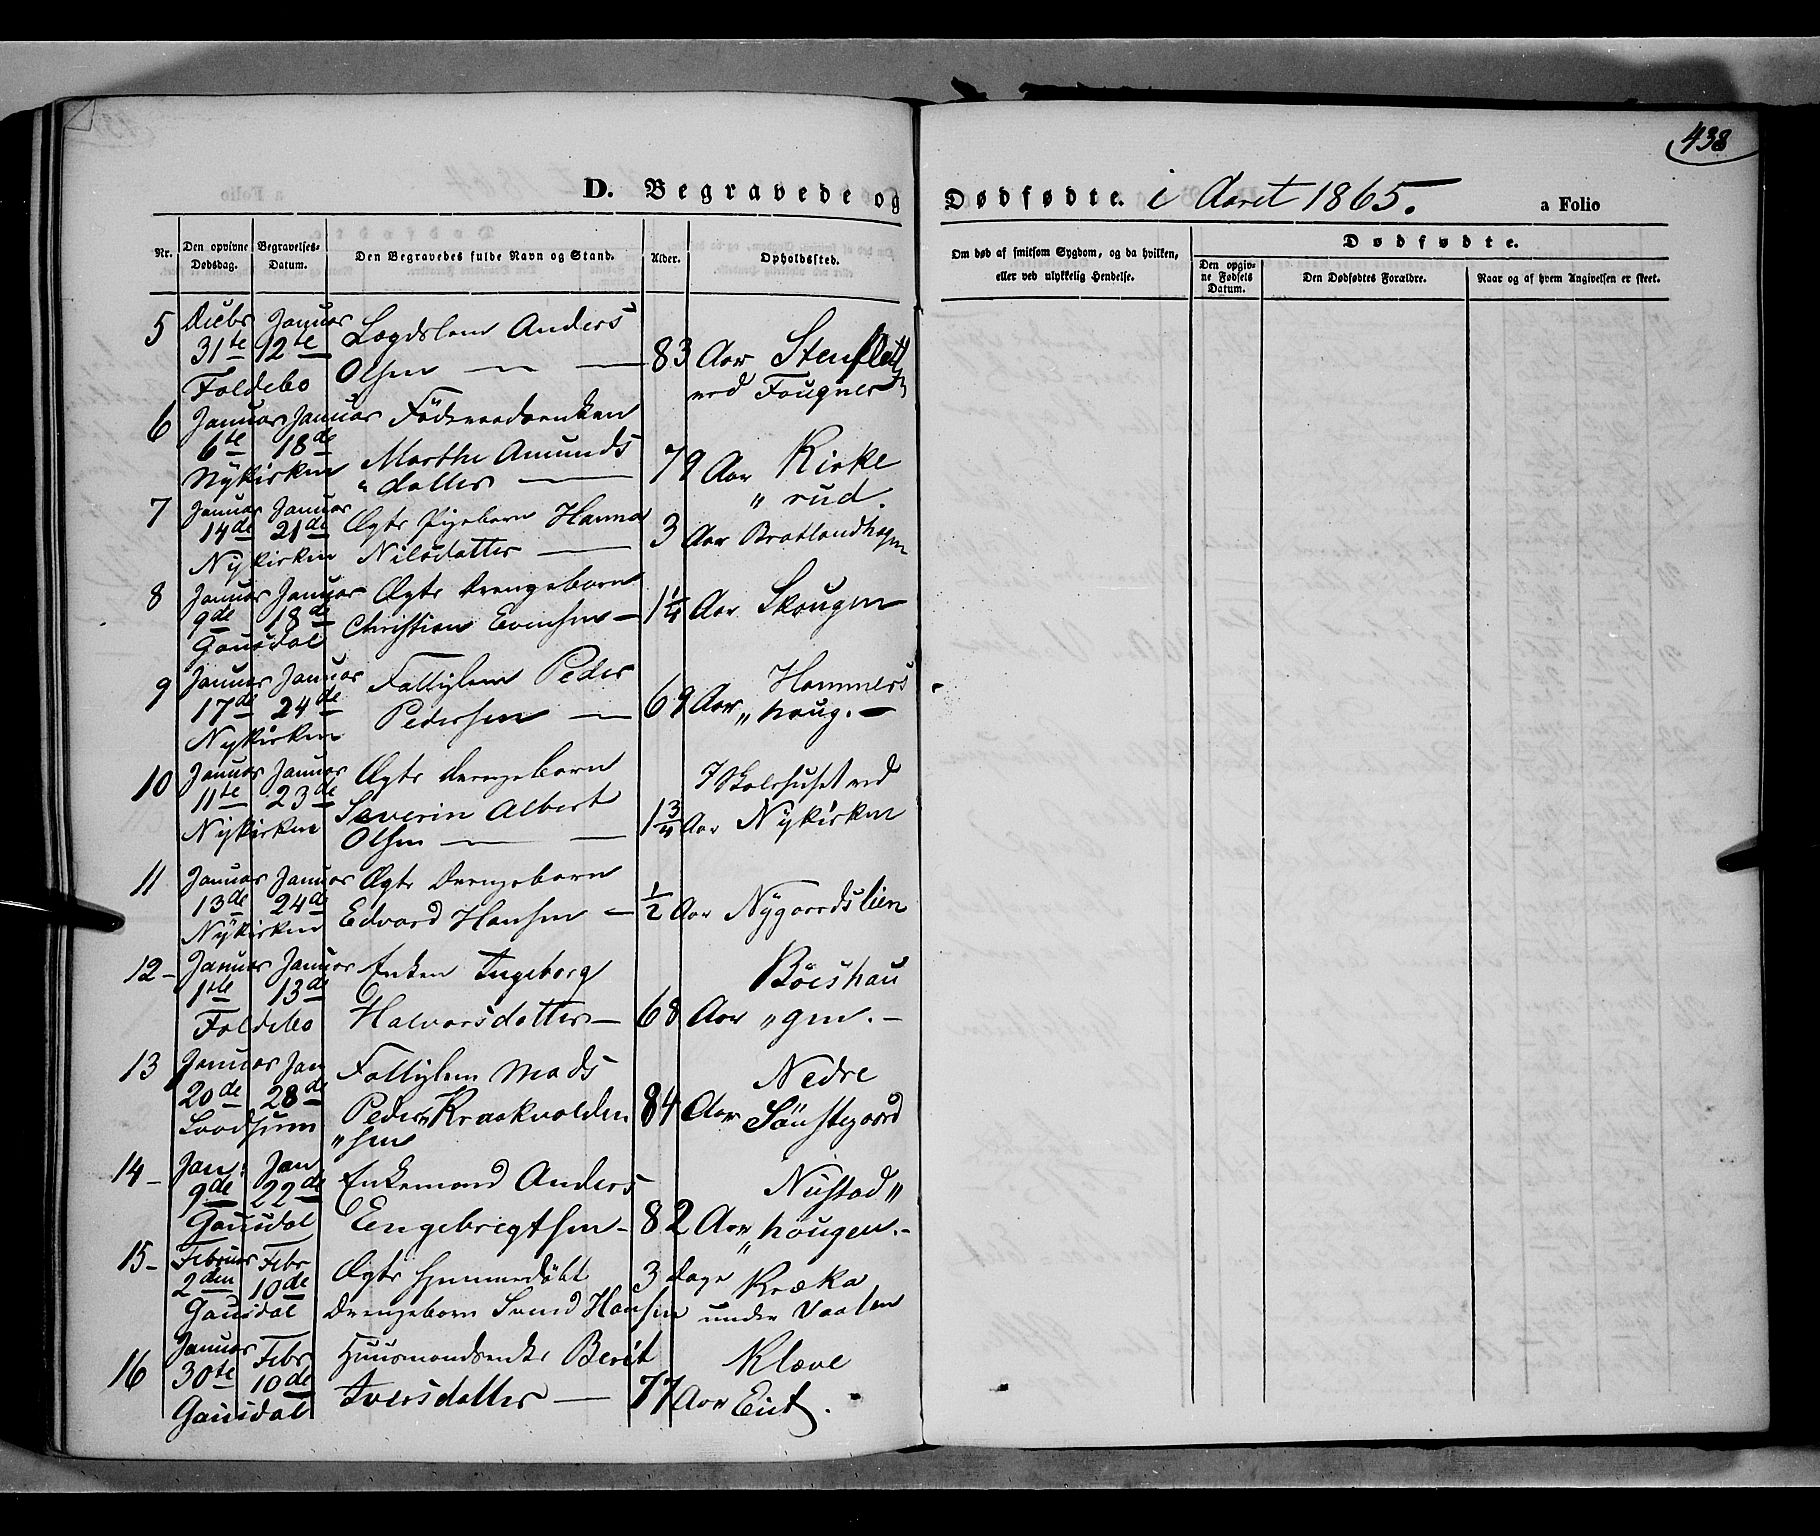 438
D. Begravede og Dødfødte. i Aaret 1865. a Folio
Nr. Den opgivne Dødsdag. Begravelses-Datum. Den Begravedes fulde Navn og Stand. Alder. Opholdssted.
Om død af smitsom Sygdom, og da hvilken, eller ved ulykkelig Hendelse.
Dødfødte.
Den opgivne Fødsels Datum. Den Dødfødtes Forældre. Naar og af hvem Angivelsen er skeet.
5 Decbr Januar Lægdslem Anders
31te 12te Olsen — — 83 Aar Stenslett
Foldebo ved Fougner
6 Januar Januar Föderaadsenken
6te 18de Marthe Amunds 79 Aar Kirke
Nykirken "datter — "rud.
7 Januar Januar Ægte Pigebarn Hanna
14de 21de Nilsdatter — 3 Aar Bratlandhagen
Nykirken
8 Januar Januar Ægte Drengebarn
9de 18de Christian Evensen — 1¼ Aar Skougen
Gausdal
9 Januar Januar Fattiglem Peder
17de 24de Pedersen — 69 Aar Hammers
Nykirken "houg. —
10 Januar Januar Ægte Drengebarn
11te 23de Severin Albert Skolehuset ved
Nykirken Olsen — — 1¾ Aar Nykirken
11 Januar Januar Ægte Drengebarn
13de 24de Edvard Hansen — ½ Aar Nygaardslien
Nykirken
12 – Januar Januar Enken Ingeborg Böeshau
1ste 13de Halvorsdatter — 68 Aar "gen. –
Foldebo
13 Januar Jan Fattiglem Mads Nedre
20de 28de Peder" Kraakvolden 84 Aar Sönstegaard
"sen
14 – Jan: Jan Enkemand Anders Nustad"
9de 22de Engebrigtsen – 82 Aar "hougen. –
Gausdal
15 – Februar Febr Ægte hjemmedöbt 3 Dage Kræka
2den 10de Drengebarn Svend Hansen under
Gausdal
16 Januar Febr Huusmandsenke Berit Klæve
30te 10de Iversdatter — 77 Aar Eiet.
Gausdal